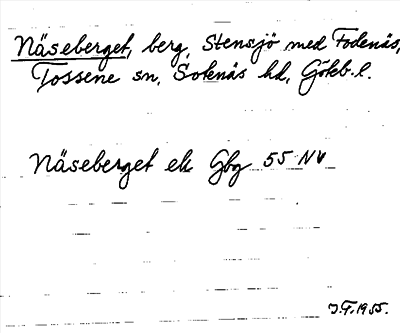 Näseberget, berg, Stensjö med Fodenäs,
Tossene sn, Sotenäs hd, Gökb. l.
Näseberget ek Gbg 55 NV
J.F. 1955.